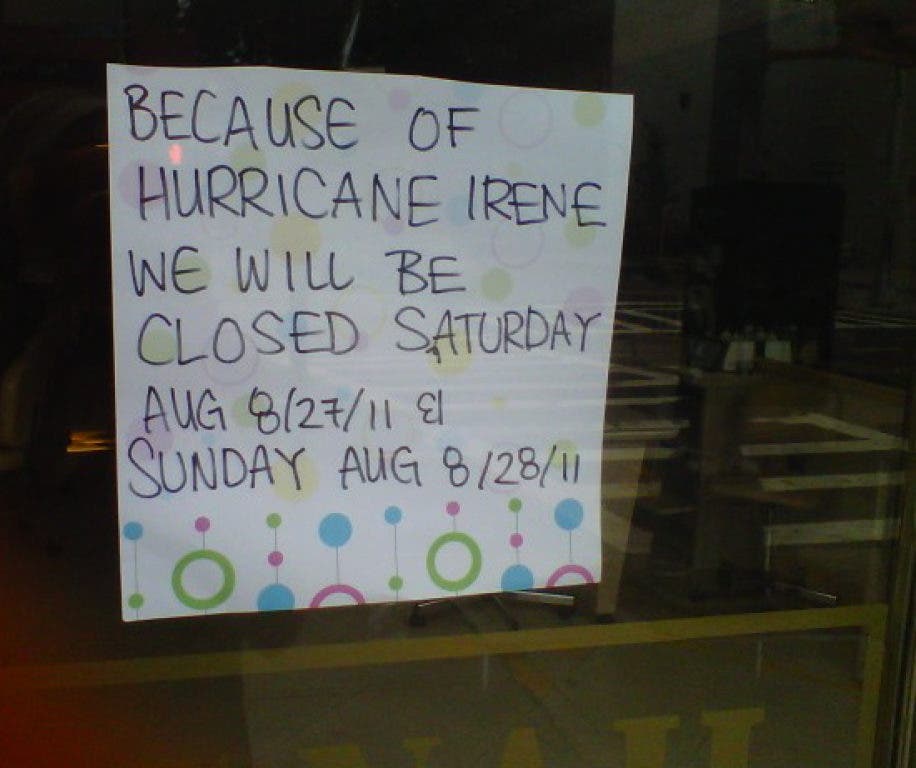 BECAUSE OF
HURRICANE IRENE
WE WILL BE
CLOSED SATURDAY
AUG 8/27/11 &
SUNDAY AUG 8/28/11
NAIL